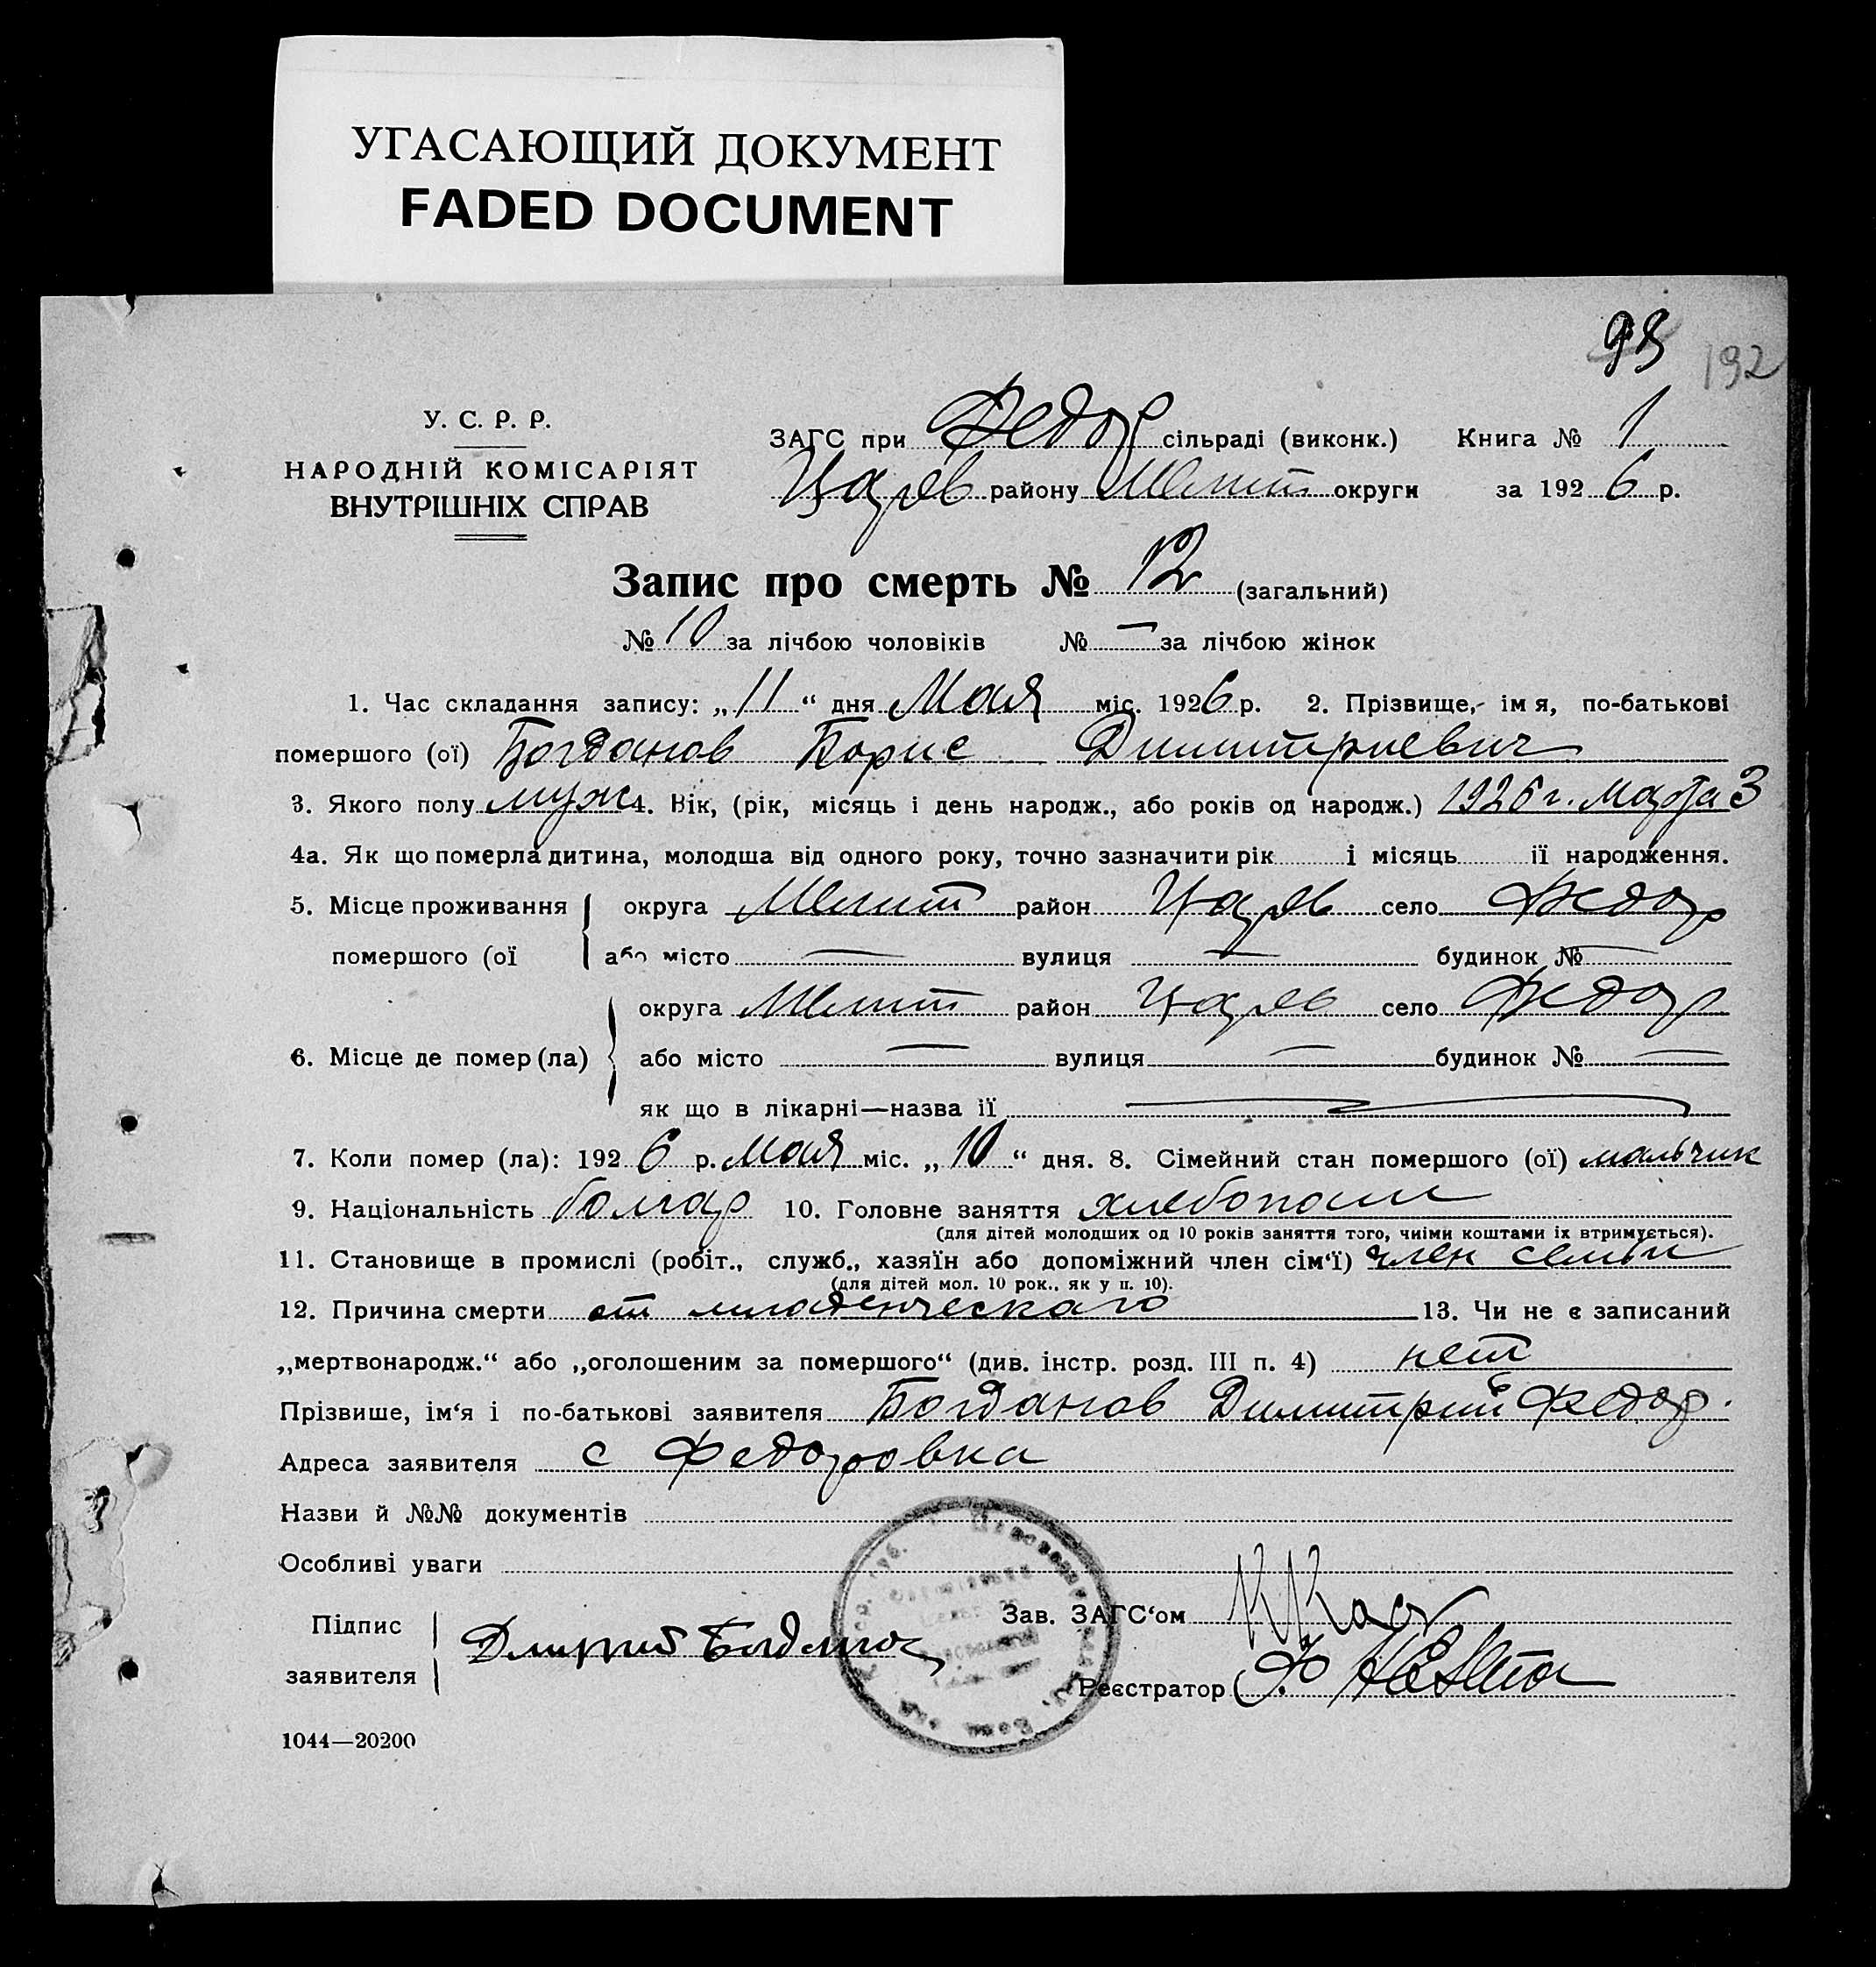 УГАСАЮЩИЙ ДОКУМЕНТ
FADED DOCUMENT
192
У. С. Р. Р.
НАРОДНІЙ КОМІСАРІЯТ
ВНУТРІШНІХ СПРАВ
ЗАГС при Федор сільраді (виконк.) Книга № 1
Царев району Мелит округи за 1926 р.
Запис про смерть № 12 (загальний)
№ 10 за лічбою чоловіків № — за лічбою жінок
1. Час складання запису: „11“ дня Мая міс. 1926 р. 2. Прізвище, ім я, по-батькові
помершого (ої) Богданов Борис Димитриевич
3. Якого полу муж 4. Вік, (рік, місяць і день народж., або років од народж.) 1926 г. Марта 3
4а. Як що померла дитина, молодша від одного року, точно зазначити рік і місяць її народження.
5. Місце проживання округа Мелит район Царев село Федор
помершого (ої або місто — вулиця — будинок № —
округа Мелит район Царев село Федор
6. Місце де помер (ла) або місто — вулиця — будинок № —
як що в лікарні—назва її —
7. Коли помер (ла): 1926 р. Мая міс. „10“ дня. 8. Сімейний стан помершого (ої) мальчик
9. Національність болгар 10. Головне заняття хлебопаш
(для дітей молодших од 10 років заняття того, чиїми коштами їх втримується).
11. Становище в промислі (робіт., служб., хазяїн або допоміжний член сім‘ї) член семьи
(для дітей мол. 10 рок., як у п. 10).
12. Причина смерти от младенческаго 13. Чи не є записаний
„мертвонародж.“ або „оголошеним за помершого“ (див. інстр. розд. III п. 4) нет
Прізвише, ім‘я і по-батькові заявителя Богданов Димитрий Федор.
Адреса заявителя с Федоровка
Назви й №№ документів
Особливі уваги
Підпис
заявителя Дмитрий Богданов
Зав. ЗАГС‘ом
Реєстратор
1044—20200